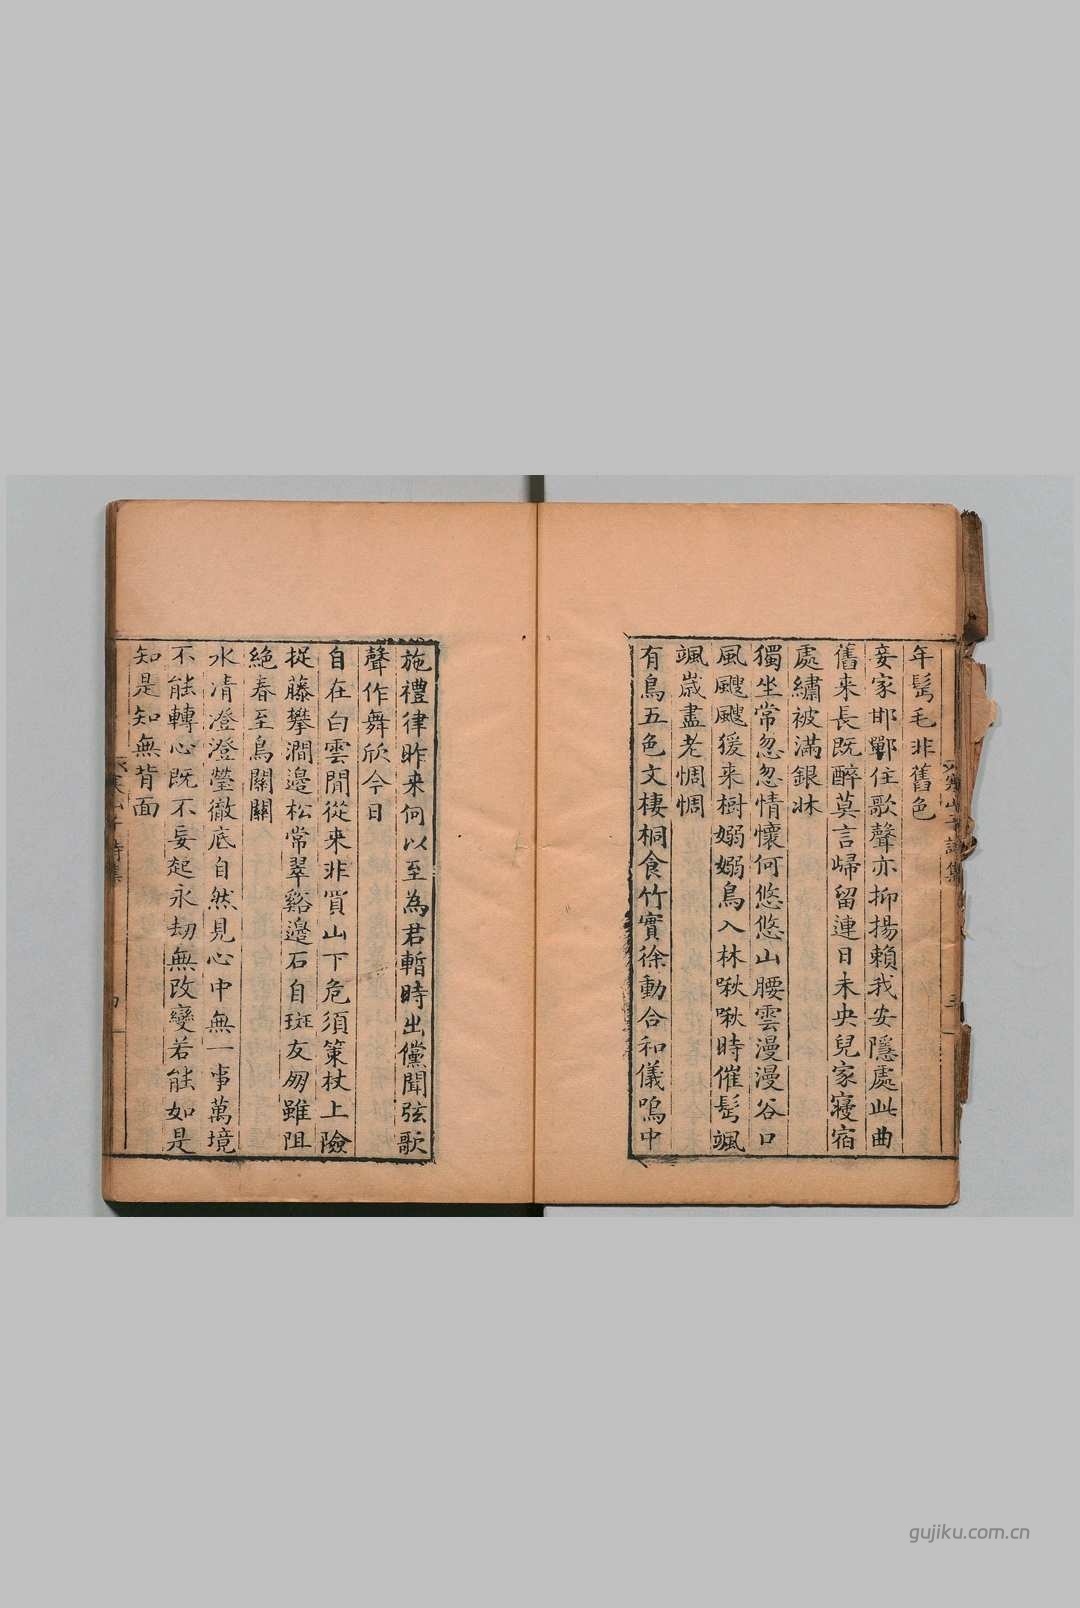 年髩毛非舊色
妾家邯鄲住歌聲亦抑揚賴我安隱處此曲
舊来長既醉莫言歸留連日未央兒家寢宿
處繡被滿銀牀
獨坐常忽忽情懷何悠悠山腰雲漫漫谷口
風颼颼猨来樹嫋嫋鳥入林啾啾時催髩颯
颯歳盡老惆惆
有鳥五色文棲桐食竹實徐動合和儀鳴中
施禮律昨来何以至為君暫時出儻聞弦歌
聲作舞欣今日
自在白雲閒從来非買山下危須策杖上險
捉藤攀澗邊松常翠谿邊石自斑友朋雖阻
絶春至鳥關關
水清澄澄瑩徹底自然見心中無一事萬境
不能轉心既不妄起永劫無改變若能如是
知是知無背面
寒山子詩集
gujiku.com.cn